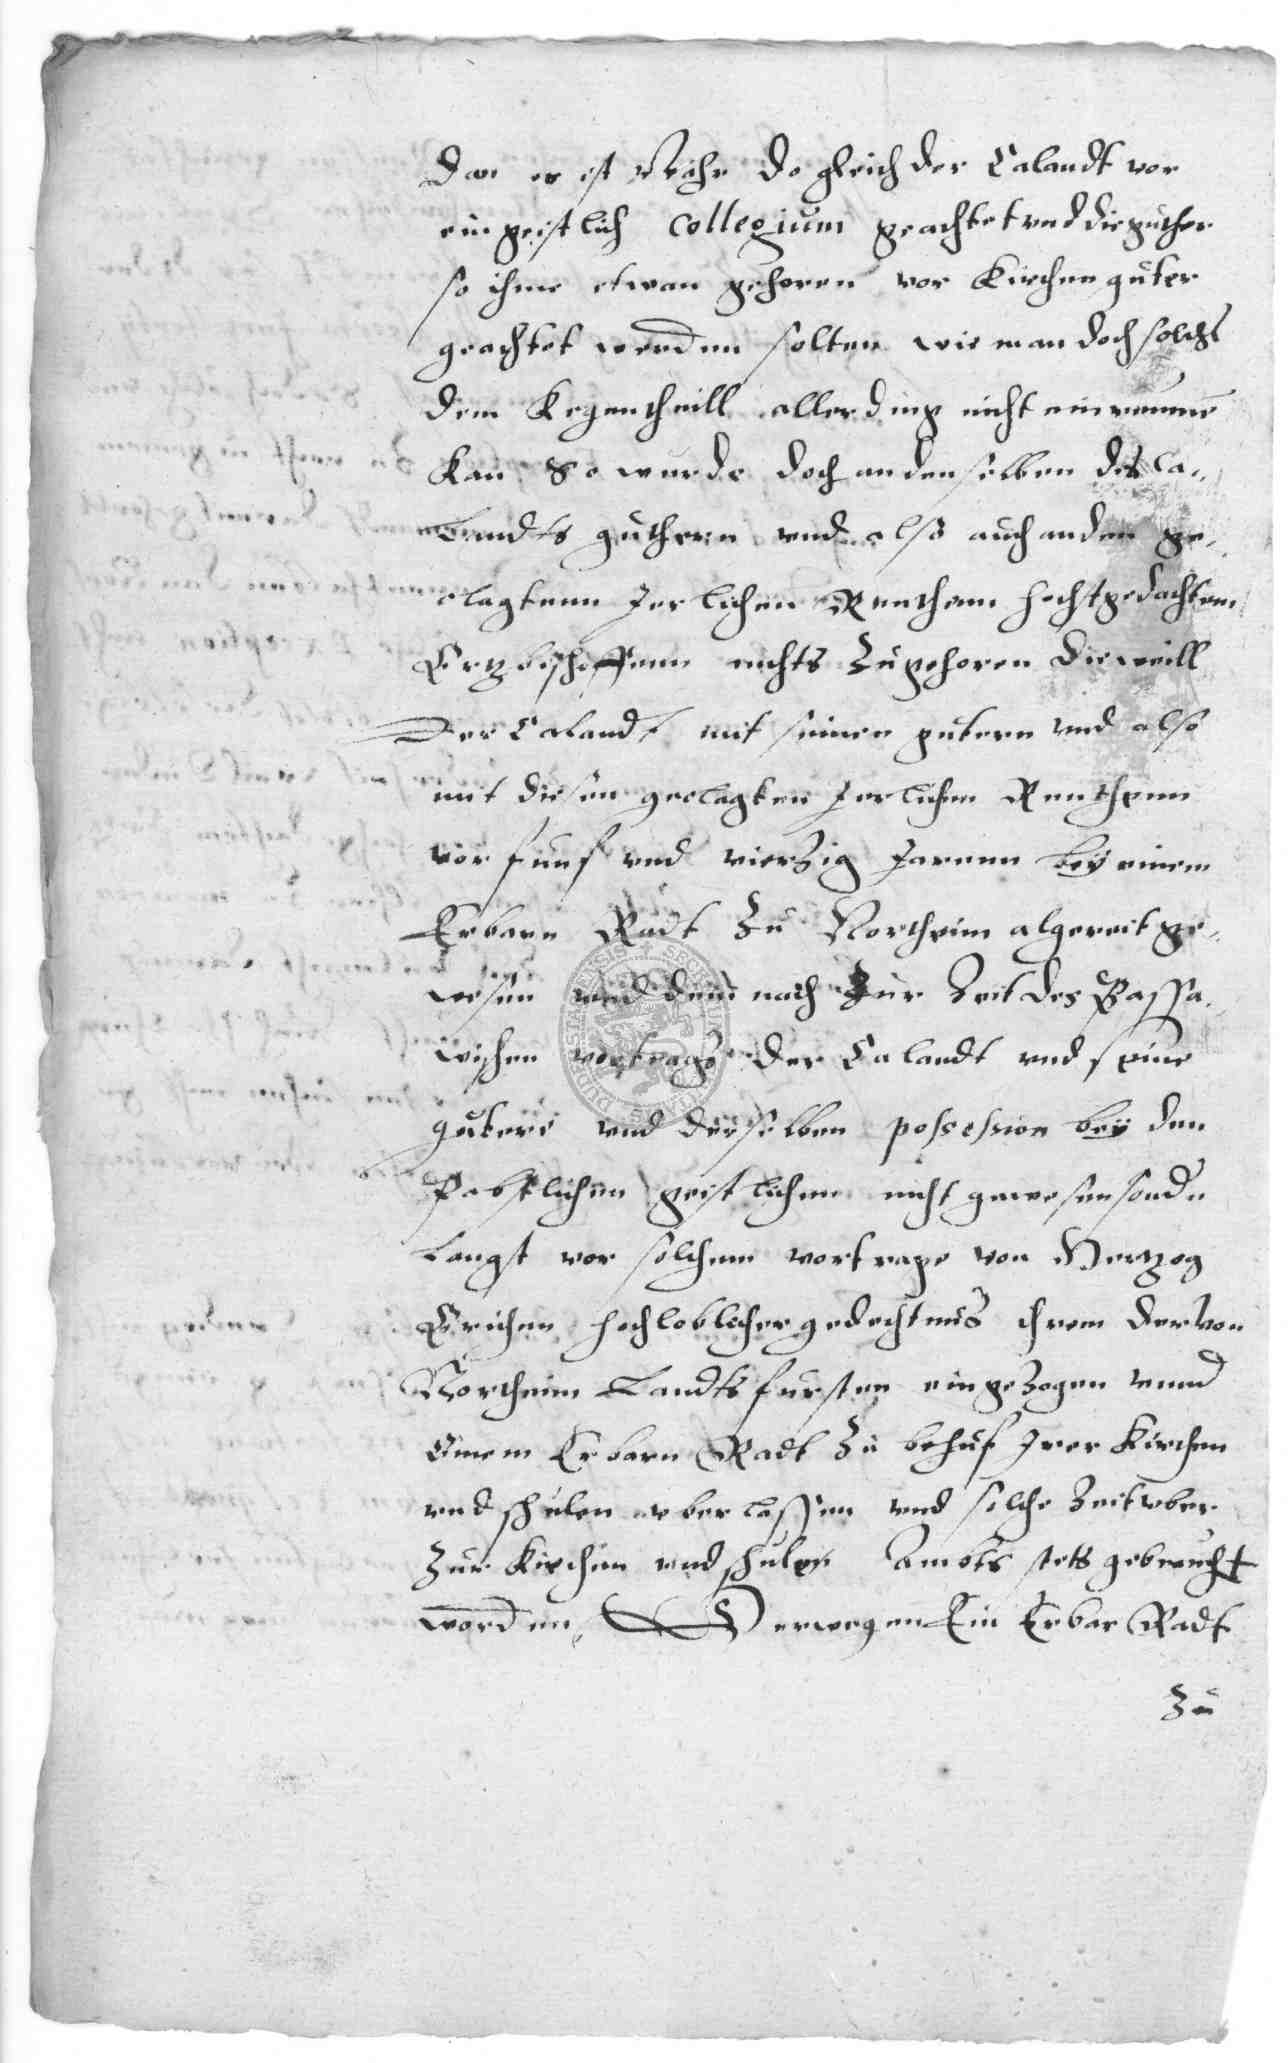 Dan es ist Wahr do gleich der Calandt vor
ein geistlich Collegium geachtet vnd die guther
so ihme etwan gehoren vor Kirchen guter
geachtet werden solten wie man doch solchs
dem Kegentheill allerding nicht einreumē
Kan So wurde doch an denselben des Ca„
landts guthern vnd also auch an den ge„
clagtenn Jerlichen Renthenn hochstgedachtem
Ertzbischoffenn nichts Zugehoren dieweill
Der Calandt mit seinen gutern vnd also
mit diesen geclagten Jerlichen Renthenn
vor funf vnd vierzig Jarenn bey einem
Erbarn Radt Zu Northeim algereit ge„
wesen vnd dem nach Zur Zeit des Passa„
wischen vortrags der Calandt vnd seine
gutere vnd derselben possession bey den
Pabstlichen geistlichen nicht gewesen sondn
Langst vor solchem vortrage von Hertzog
Erichen hochloblicher gedechtnus ihrem der von
Northeim Landtsfursten eingezogen vnnd
Einem Erbarn Radt Zu behuf Irer Kirchen
vnd schulen vberlassen vnd solche Zeit vber
Zur Kirchen vnd schulen Ambts stets gebraucht
worden, Derwegen Ein Erbar Radt
Zu